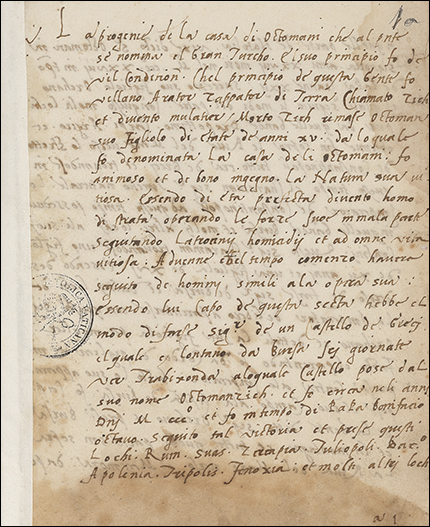 1a
La progenie de la casa di Octomani che al pnte
se nomina el Gran Turcho. El suo principio fo de
vil Condition. Nel principio de questa gente fo
villano Arator Zappator di Terra Chiamato Zich
et divento mulatier, Morto Zich rimase Octoman
suo figliolo di etate de anni xv. da lo quale
fo denominata La casa deli octomani: fo
animoso et de bono ingegno. La Natura sua vi
tiosa. Essendo di eta perfecta divento homo
di strata operando le forze sue in mala parte
seguitando Latrocinij homicidij et ad omne vita
vitiosa: Advenne chel tempo comenzo havere
seguito de homini simili ala opera sua:
Essendo lui Capo de questa secta hebbe el
modo di farse sigr de un Castello de Greci
el quale en lontano da Bursa sej giornate
ver Trabixonda aloquale Castello pose dal
suo nome Octomanzich. et fo circa neli anni
Dnj M. ccc. et fo in tempo di Papa Bonifacio
octavo. Seguito tal victoria et prese questi
Lochi. Rum. suas. Juliopoli.
Apolenia, Tripolis. et molti altrj lochi
a 1